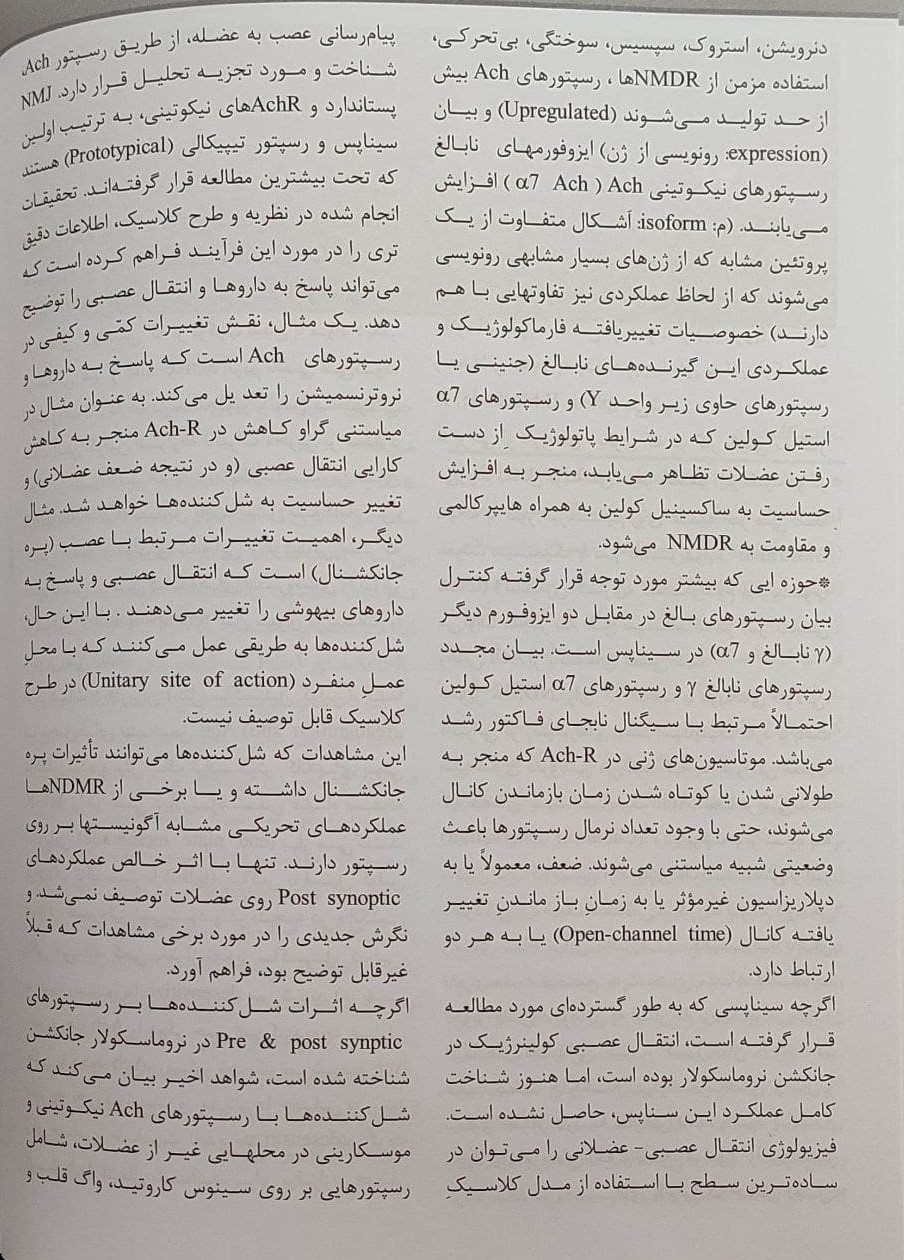 دنرویشن، استروک، سپسیس، سوختگی، بی‌تحرکی،
استفاده مزمن از NMDRها ، رسپتورهای Ach بیش
از حد تولید می‌شوند (Upregulated) و بیان
(expression: رونویسی از ژن) ایزوفورمهای نابالغ
رسپتورهای نیکوتینی Ach ( α7 Ach) افزایش
می‌یابند. (م: isoform: أشکال متفاوت از یک
پروتئین مشابه که از ژن‌های بسیار مشابهی رونویسی
می‌شوند که از لحاظ عملکردی نیز تفاوتهایی با هم
دارند) خصوصیات تغییریافته فارماکولوژیک و
عملکردی این گیرنده‌های نابالغ (جنینی یا
رسپتورهای حاوی زیر واحد Y) و رسپتورهای α7
استیل کولین که در شرایط پاتولوژیک ِاز دست
رفتن عضلات تظاهر می‌یابد، منجر به افزایش
حساسیت به ساکسینیل کولین به همراه هایپرکالمی
و مقاومت به NMDR می‌شود.
*حوزه ایی که بیشتر مورد توجه قرار گرفته کنترل
بیان رسپتورهای بالغ در مقابل دو ایزوفورم دیگر
(γ نابالغ و α7) در سیناپس است. بیان مجدد
رسپتورهای نابالغ γ و رسپتورهای α7 استیل کولین
احتمالاً مرتبط با سیگنال نابجای فاکتور رشد
می‌باشد. موتاسیون‌های ژنی در Ach-R که منجر به
طولانی شدن یا کوتاه شدن زمان بازماندن کانال
می‌شوند، حتی با وجود تعداد نرمال رسپتورها باعث
وضعیتی شبیه میاستنی می‌شوند. ضعف، معمولاً یا به
دپلاریزاسیون غیرمؤثر یا به زمانِ باز ماندنِ تغییر
یافته کانال (Open-channel time) یا به هر دو
ارتباط دارد.
اگرچه سیناپسی که به طور گسترده‌ای مورد مطالعه
قرار گرفته است، انتقال عصبی کولینرژیک در
جانکشن نروماسکولار بوده است، اما هنوز شناخت
کامل عملکرد این سناپس، حاصل نشده است.
فیزیولوژی انتقال عصبی- عضلانی را می‌توان در
ساده‌ترین سطح با استفاده از مدل کلاسیکِ
پیام‌رسانی عصب به عضله، از طریق رسپتور Ach،
شناخت و مورد تجزیه تحلیل قرار دارد. NMJ
پستاندارد و AchRهای نیکوتینی، به ترتیب اولین
سیناپس و رسپتور تیپیکالی (Prototypical) هستند
که تحت بیشترین مطالعه قرار گرفته‌اند. تحقیقات
انجام شده در نظریه و طرح کلاسیک، اطلاعات دقیق
تری را در مورد این فرآیند فراهم کرده است که
می‌تواند پاسخ به داروها و انتقال عصبی را توضیح
دهد. یک مثال، نقش تغییرات کمّی و کیفی در
رسپتورهای Ach است که پاسخ به داروها و
نروترنسمیشن را تعد یل می‌کند. به عنوان مثال در
میاستنی گراو کاهش در Ach-R منجر به کاهش
کارایی انتقال عصبی (و در نتیجه ضعف عضلانی) و
تغییر حساسیت به شل‌کننده‌ها خواهد شد. مثال
دیگر، اهمیت تغییرات مرتبط با عصب (پره
جانکشنال) است که انتقال عصبی و پاسخ به
داروهای بیهوشی را تغییر می‌دهند . با این حال،
شل‌کننده‌ها به طریقی عمل می‌کنند که با محلِ
عملِ منفرد (Unitary site of action) در طرح
کلاسیک قابل توصیف نیست.
این مشاهدات که شل‌کننده‌ها می‌توانند تأثیرات پره
جانکشنال داشته و یا برخی از NDMRها
عملکردهای تحریکی مشابه آگونیستها بر روی
رسپتور دارند. تنها با اثر خالص عملکردهای
Post synoptic روی عضلات توصیف نمی‌شد، و
نگرش جدیدی را در مورد برخی مشاهدات که قبلاً
غیرقابل توضیح بود، فراهم آورد.
اگرچه اثرات شل‌کننده‌ها بر رسپتورهای
Pre & post synptic در نروماسکولار جانکشن
شناخته شده است، شواهد اخیر بیان می‌کند که
شل‌کننده‌ها با رسپتورهای Ach نیکوتینی و
موسکارینی در محلهایی غیر از عضلات، شامل
رسپتورهایی بر روی سینوس کاروتید، واگ قلب و